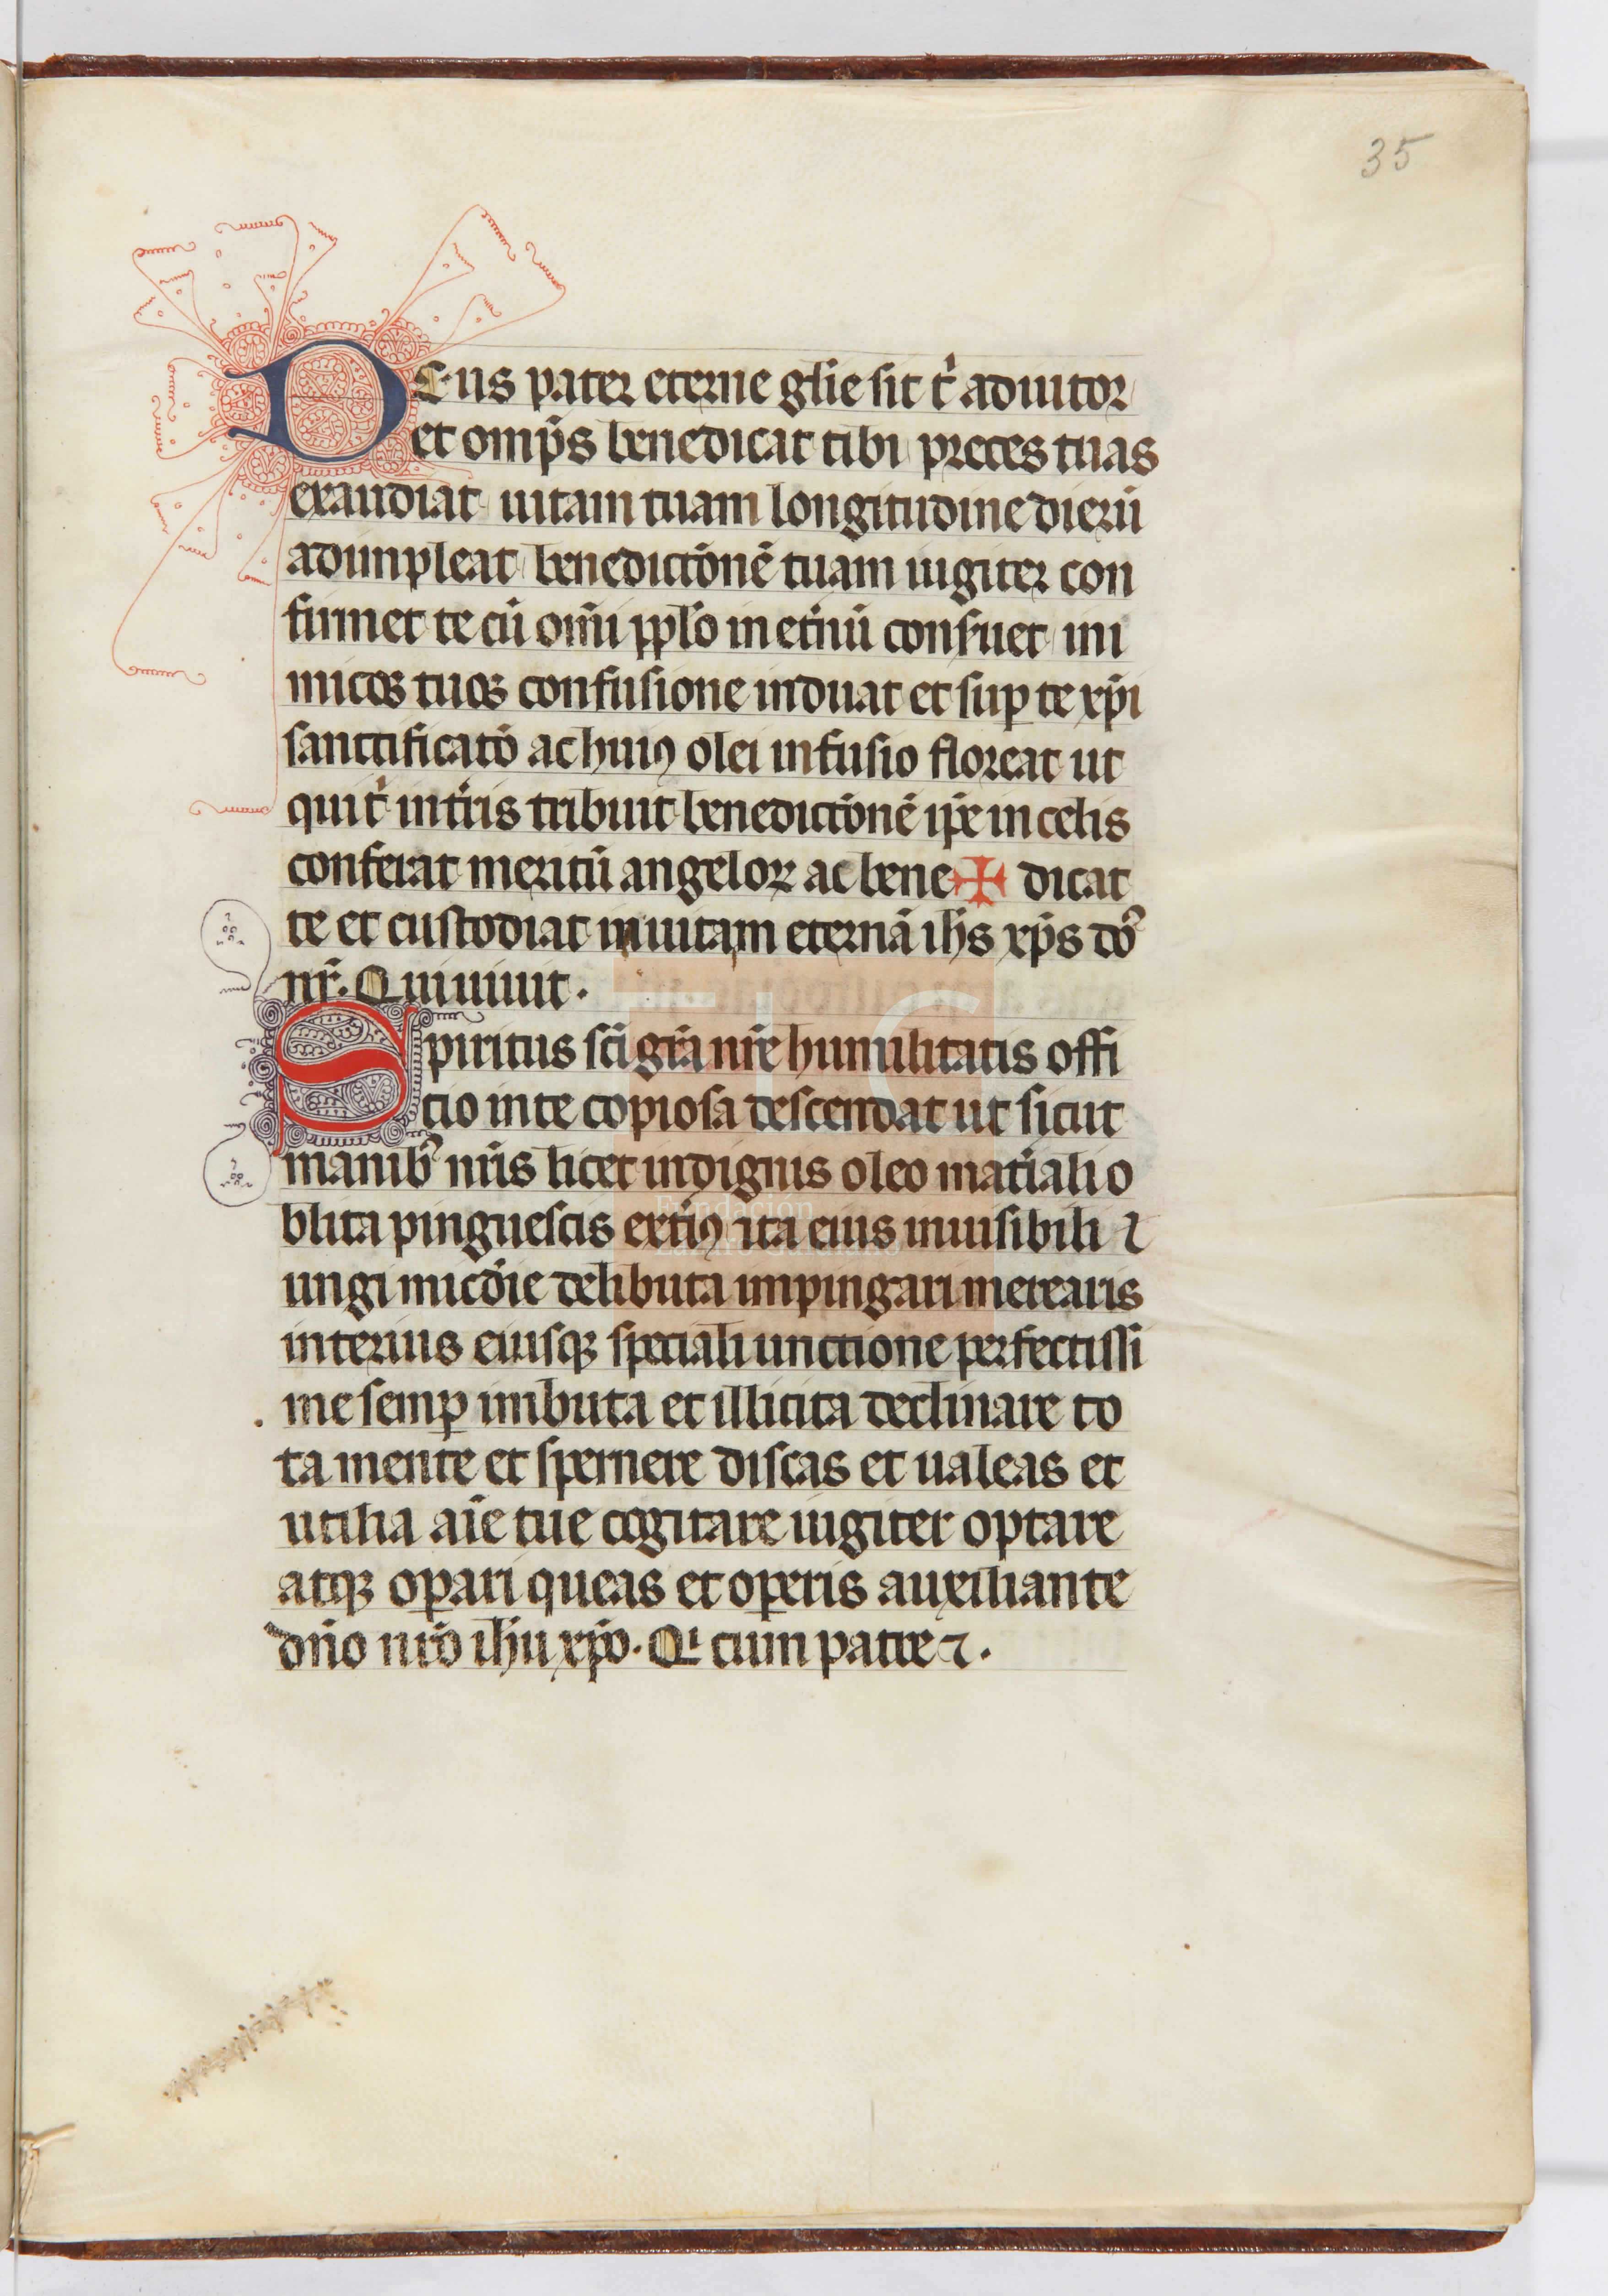 35
Deus pater eterne glíe sit t' adiutor
et omp̄s benedicat tibi preces tuas
exaudiat uitam tuam longitudine dierū
adimpleat benedictōnē tuam iugiter con
firmet te cū om̄i pplo in et'nū conseruet ini
micos tuos confusione induat et sup te xp̄i
sanctificatō ac huiꝯ olei infusio floreat ut
qui t' in t'ris tribuit benedictōnē ip̄e in celis
conferat meritū angeloꝝ ac bene✠dicat
te et custodiat in uitam eternā ih̄s xp̄s do᷒
nr̄. Qui uiuit.
Spiritus sc̄i grā nr̄e humilitatis offi
cio in te copiosa descendat ut sicut
manib᷒ nr̄is licet indignis oleo mat'iali o
blita pinguescis ext'iꝯ ita eius inuisibili ⁊
ungi mīcdie delibuta impingari merearis
interius eiusqꝫ speciali unctione perfectissi
me semꝑ imbuta et illicita declinare to
ta mente et spernere discas et ualeas et
utilia aīe tue cogitare iugiter optare
atqꝫ oꝑari queas et oꝑeris auxiliante
dn̄o nr̄o ih̄u xp̄o. Qͥ cum patre ⁊.
FLG
Fundación
Lázaro Galdiano